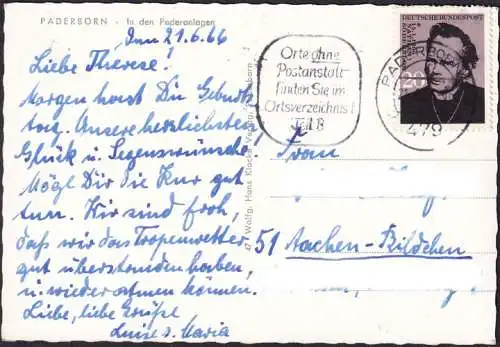 PADERBORN - In den Paderanlagen
den 21.6.66
Liebe Therese!
Morgen hast Du Geburts
tag. Unsere herzlichsten
Glück u. Segenswünsche.
Mögl Dir die Kur gut
tun. Wir sind froh,
daß wir das Tropenwetter
gut überstanden haben,
u. wieder atmen können.
Liebe, liebe Grüße
Luise u. Maria
Wolfg. Hans Klocke Verlag
Orte ohne
Postanstalt
finden Sie im
Ortsverzeichnis I
Teil B
DEUTSCHE BUNDESPOST
20
PADERBORN
479
Frau
51 Aachen-Bildchen